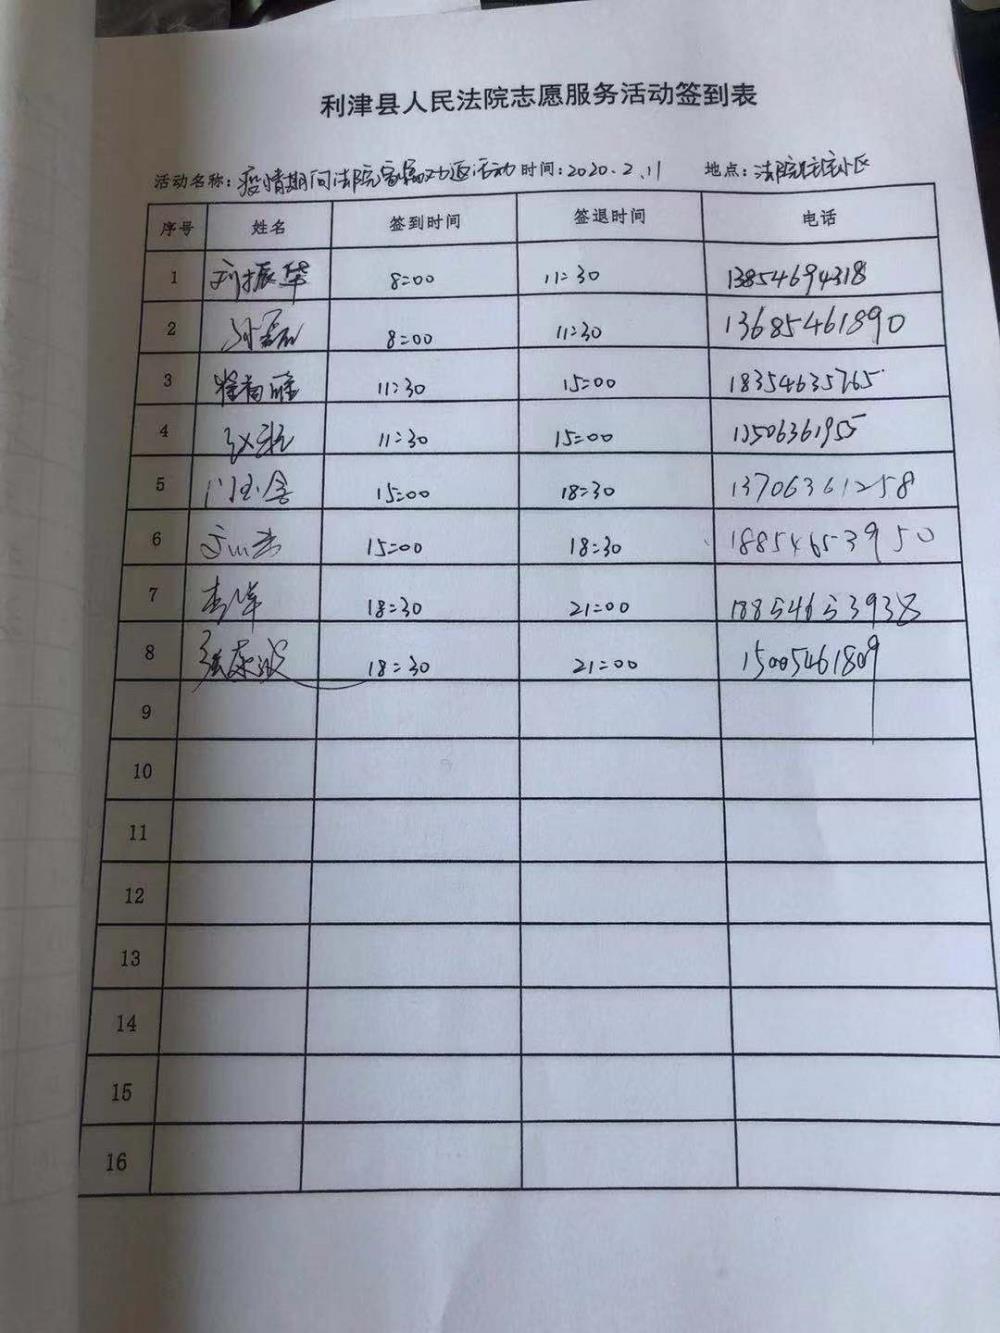 利津县人民法院志愿服务活动签到表
活动名称：疫情期间法院家属 活动 时间：2020.2.11 地点：法院住宅小区
序号 姓名 签到时间 签退时间 电话
1 刘振华 8:00 11:30 13854694318
2 孙磊 8:00 11:30 13685461890
3 11:30 15:00 18354635765
4 11:30 15:00 13506361955
5 15:00 18:30 13706361258
6 15:00 18:30 18854653950
7 李洋 18:30 21:00 18854653938
8 张 18:30 21:00 15005461809
9
10
11
12
13
14
15
16